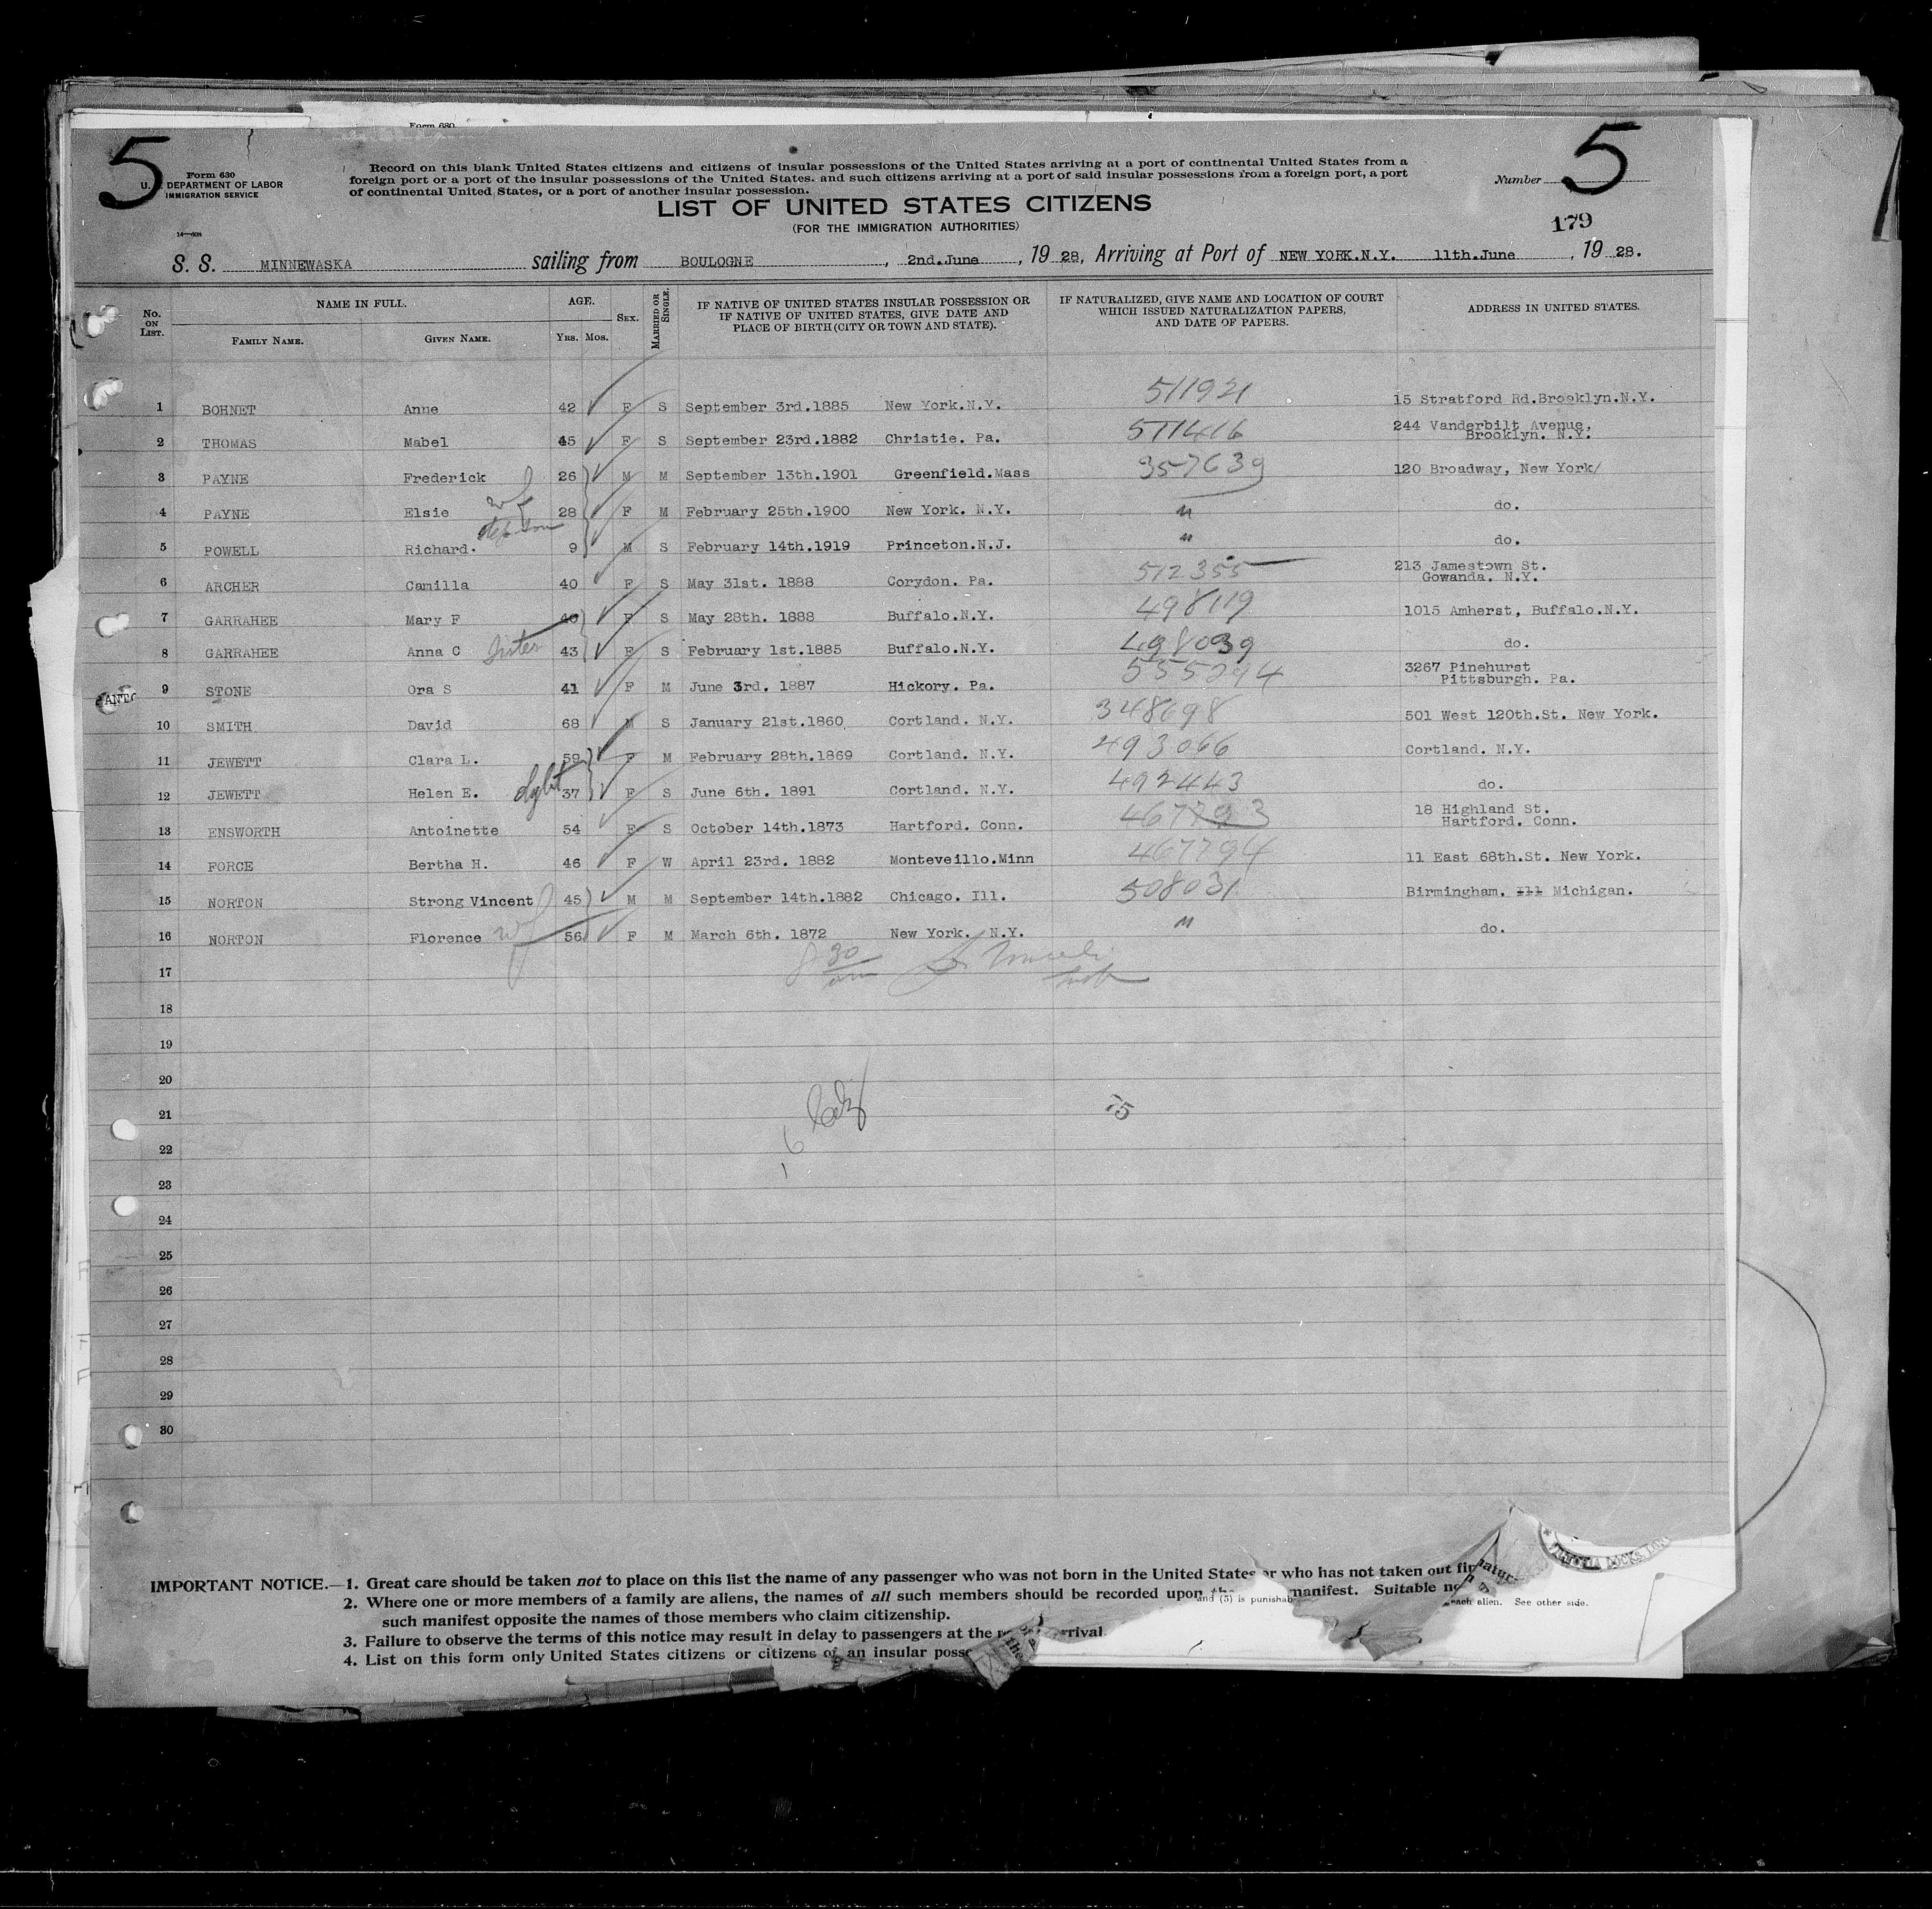 Form 630
5
5
Form 630
U. S. DEPARTMENT OF LABOR
IMMIGRATION SERVICE
14—608
Record on this blank United States citizens and citizens of insular possessions of the United States arriving at a port of continental United States from a
foreign port or a port of the insular possessions of the United States. and such citizens arriving at a port of said insular possessions from a foreign port, a port
of continental United States, or a port of another insular possession.
Number
LIST OF UNITED STATES CITIZENS
(FOR THE IMMIGRATION AUTHORITIES)
179
S. S. MINNEWASKA sailing from BOULOGNE, 2nd.June, 19 28, Arriving at Port of NEW YORK.N.Y. 11th.June, 19 28.
No. ON LIST. NAME IN FULL. FAMILY NAME. GIVEN NAME. AGE. YRS. MOS. SEX. MARRIED OR SINGLE. IF NATIVE OF UNITED STATES INSULAR POSSESSION OR IF NATIVE OF UNITED STATES, GIVE DATE AND PLACE OF BIRTH (CITY OR TOWN AND STATE). IF NATURALIZED, GIVE NAME AND LOCATION OF COURT WHICH ISSUED NATURALIZATION PAPERS, AND DATE OF PAPERS. ADDRESS IN UNITED STATES.
1 BOHNET Anne 42 F S September 3rd.1885 New York.N.Y. 511921 15 Stratford Rd.Brooklyn.N.Y.
2 THOMAS Mabel 45 F S September 23rd.1882 Christie. Pa. 511416 244 Vanderbilt Avenue, Brooklyn. N.Y.
3 PAYNE Frederick 26 M M September 13th.1901 Greenfield.Mass 357639 120 Broadway, New York/
4 PAYNE Elsie wf 28 F M February 25th.1900 New York. N.Y. " do.
5 POWELL Richard. step son 9 M S February 14th.1919 Princeton.N.J. " do.
6 ARCHER Camilla 40 F S May 31st. 1888 Corydon. Pa. 512355 213 Jamestown St. Gowanda. N.Y.
7 GARRAHEE Mary F 40 F S May 28th. 1888 Buffalo.N.Y. 498119 1015 Amherst, Buffalo.N.Y.
8 GARRAHEE Anna C Sister 43 F S February 1st.1885 Buffalo.N.Y. 498039 do.
9 STONE Ora S 41 F M June 3rd. 1887 Hickory. Pa. 555294 3267 Pinehurst Pittsburgh. Pa.
10 SMITH David 68 M S January 21st.1860 Cortland. N.Y. 348698 501 West 120th.St. New York.
11 JEWETT Clara L. 59 F M February 28th.1869 Cortland. N.Y. 493066 Cortland. N.Y.
12 JEWETT Helen E. dght 37 F S June 6th. 1891 Cortland. N.Y. 492443 do.
13 ENSWORTH Antoinette 54 F S October 14th.1873 Hartford. Conn. 467793 18 Highland St. Hartford. Conn.
14 FORCE Bertha H. 46 F W April 23rd. 1882 Monteveillo.Minn 467794 11 East 68th.St. New York.
15 NORTON Strong Vincent 45 M M September 14th.1882 Chicago. Ill. 508031 Birmingham. Ill Michigan.
16 NORTON Florence wf 56 F M March 6th. 1872 New York. N.Y. " do.
17 8 30 am
18
19
20
21 75
22
23
24
25
26
27
28
29
30
16
IMPORTANT NOTICE.—1. Great care should be taken not to place on this list the name of any passenger who was not born in the United States or who has not taken out
2. Where one or more members of a family are aliens, the names of all such members should be recorded upon manifest. Suitable
and (5) is each alien. See other side.
such manifest opposite the names of those members who claim citizenship.
3. Failure to observe the terms of this notice may result in delay to passengers at the
4. List on this form only United States citizens or citizens of an insular